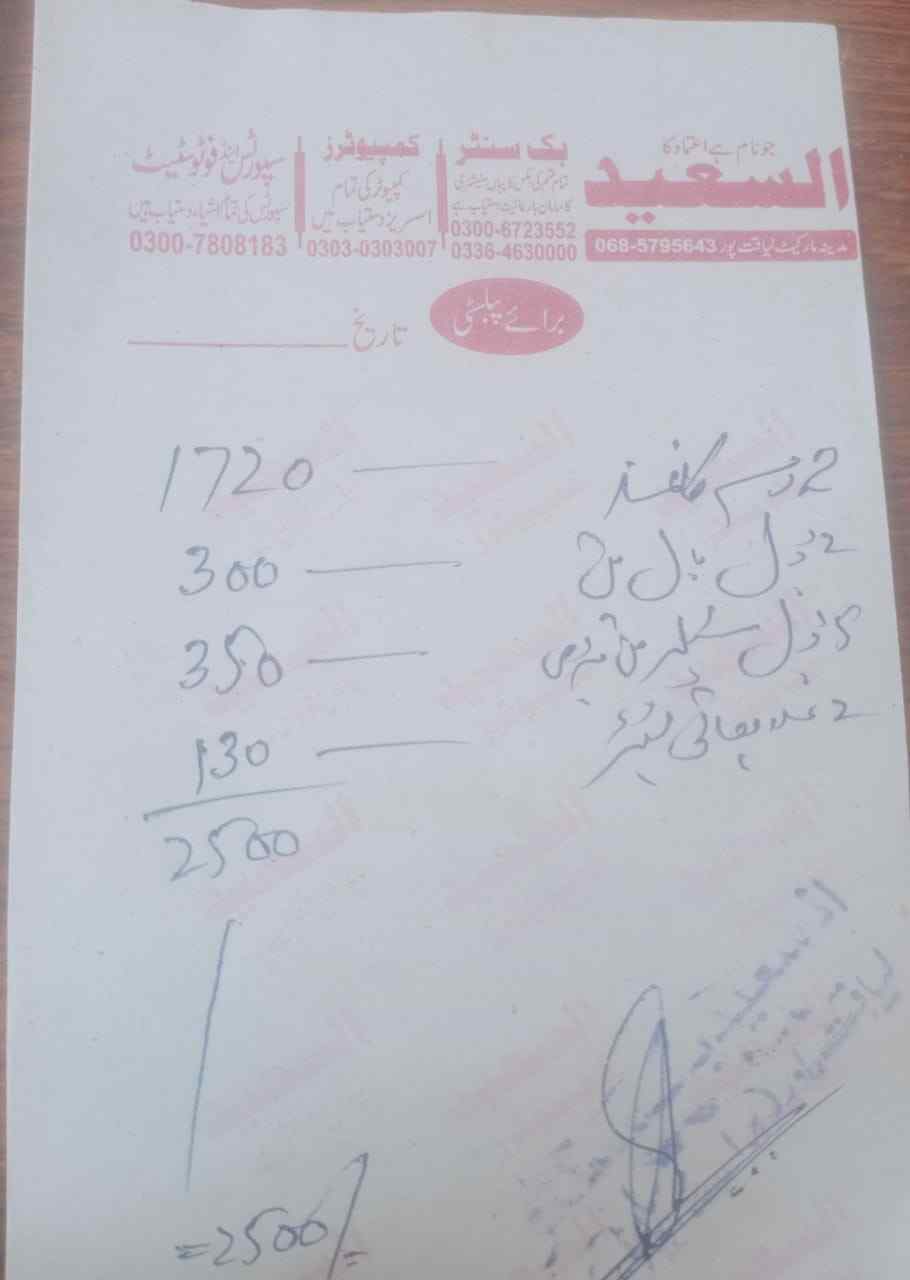 جو نام ہے اعتماد کا
السعید
مدینہ مارکیٹ لیاقت پور 068-5795643
بک سنٹر
تمام قسم کی بکس کاپیاں سٹیشنری
کا سامان بارعائیت دستیاب ہے
0300-6723552
0336-4630000
کمپیوٹرز
کمپیوٹر کی تمام
اسسریز دستیاب ہیں
0303-0303007
سپورٹس اینڈ فوٹوسٹیٹ
سپورٹس کی تمام اشیاء دستیاب ہیں
0300-7808183
برائے پبلسٹی
تاریخ
2 رم کاغذ — 1720
2 ڈبل بال — 300
5 — 350
2 عدد — 130
2500
السعید
لیاقت پور
=2500/=